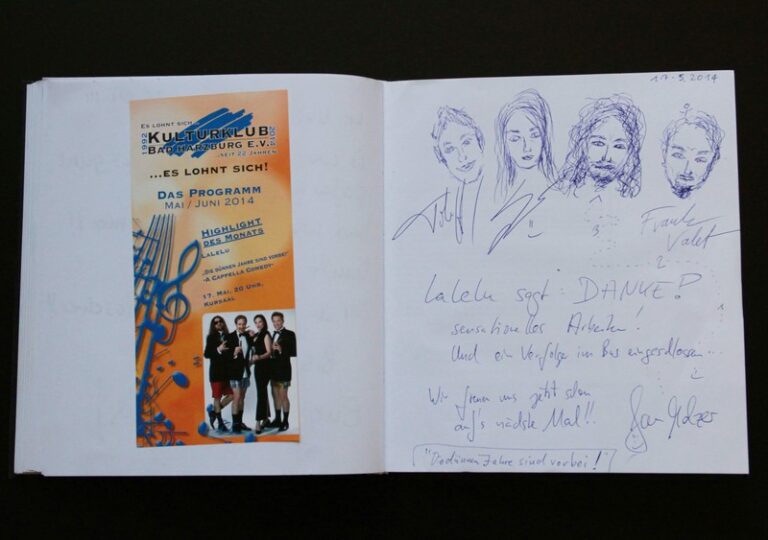 Es lohnt sich...
1992
Kulturklub
2014
Bad Harzburg e.V.
...seit 22 Jahren
...es lohnt sich!
Das Programm
Mai / Juni 2014
Highlight
des Monats
LaLeLu
„Die dünnen Jahre sind vorbei"
-A Cappella Comedy-
17. Mai, 20 Uhr,
Kursaal
17.5.2014
3
Frank
Valet
Lalelu sagt: DANKE!
sensationelles Arbeiten!
Und ein Verfolger im Bus eingeschlossen...
Wir freuen uns jetzt schon
auf's nächste Mal!!
Jan Melzer
"Die dünnen Jahre sind vorbei!"